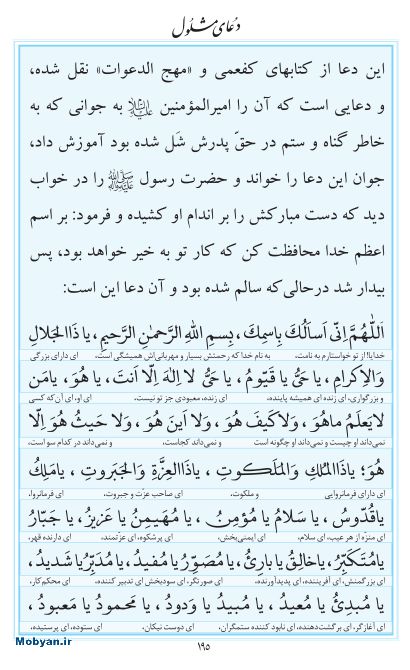 دعای مشلول
این دعا از کتابهای کفعمی و «مهج الدعوات» نقل شده،
و دعایی است که آن را امیرالمؤمنین علیه‌السلام به جوانی که به
خاطر گناه و ستم در حقّ پدرش شَل شده بود آموزش داد،
جوان این دعا را خواند و حضرت رسول ﷺ را در خواب
دید که دست مبارکش را بر اندام او کشیده و فرمود: بر اسم
اعظم خدا محافظت کن که کار تو به خیر خواهد بود، پس
بیدار شد درحالی‌که سالم شده بود و آن دعا این است:
اَللّٰهُمَّ اِنّی اَسأَلُکَ بِاسمِکَ، بِسمِ اللهِ الرَّحمٰنِ الرَّحیمِ، یا ذَا الجَلالِ
خدایا! از تو خواستارم به نامت، به نام خدا که رحمتش بسیار و مهربانی‌اش همیشگی است، ای دارای بزرگی
وَالاِکرامِ، یا حَیُّ یا قَیّومُ، یا حَیُّ لا اِلٰهَ اِلّا اَنتَ، یا هُوَ، یا مَن
و بزرگواری، ای زنده ای همیشه پاینده، ای زنده، معبودی جز تو نیست، ای او، ای آن‌که کسی
لا یَعلَمُ ما هُوَ، وَلا کَیفَ هُوَ، وَلا اَینَ هُوَ، وَلا حَیثُ هُوَ اِلّا
نمی‌داند او چیست و نمی‌داند او چگونه است و نمی‌داند کجاست، و نمی‌داند در کدام سو است،
هُوَ؛ یا ذَا المُلکِ وَالمَلَکوتِ، یا ذَا العِزَّةِ وَالجَبَروتِ، یا مَلِکُ
ای دارای فرمانروایی و ملکوت، ای صاحب عزّت و جبروت، ای فرمانروا،
یا قُدّوسُ، یا سَلامُ یا مُؤمِنُ، یا مُهَیمِنُ یا عَزیزُ، یا جَبّارُ
ای منزّه از هر عیب، ای سلام، ای ایمنی‌بخش، ای پرشکوه، ای عزتمند، ای دارنده قهر،
یا مُتَکَبِّرُ، یا خالِقُ یا بارِئُ، یا مُصَوِّرُ یا مُفیدُ، یا مُدَبِّرُ یا شَدیدُ،
ای بزرگمنش، ای آفریننده، ای پدیدآورنده، ای صورتگر، ای سودبخش ای تدبیر کننده، ای محکم‌کار،
یا مُبدِئُ یا مُعیدُ، یا مُبیدُ یا وَدودُ، یا مَحمودُ یا مَعبودُ،
ای آغازگر، ای برگشت‌دهنده، ای نابود کننده ستمگران، ای دوست نیکان، ای ستوده، ای پرستیده،
۱۹۵
Mobyan.ir